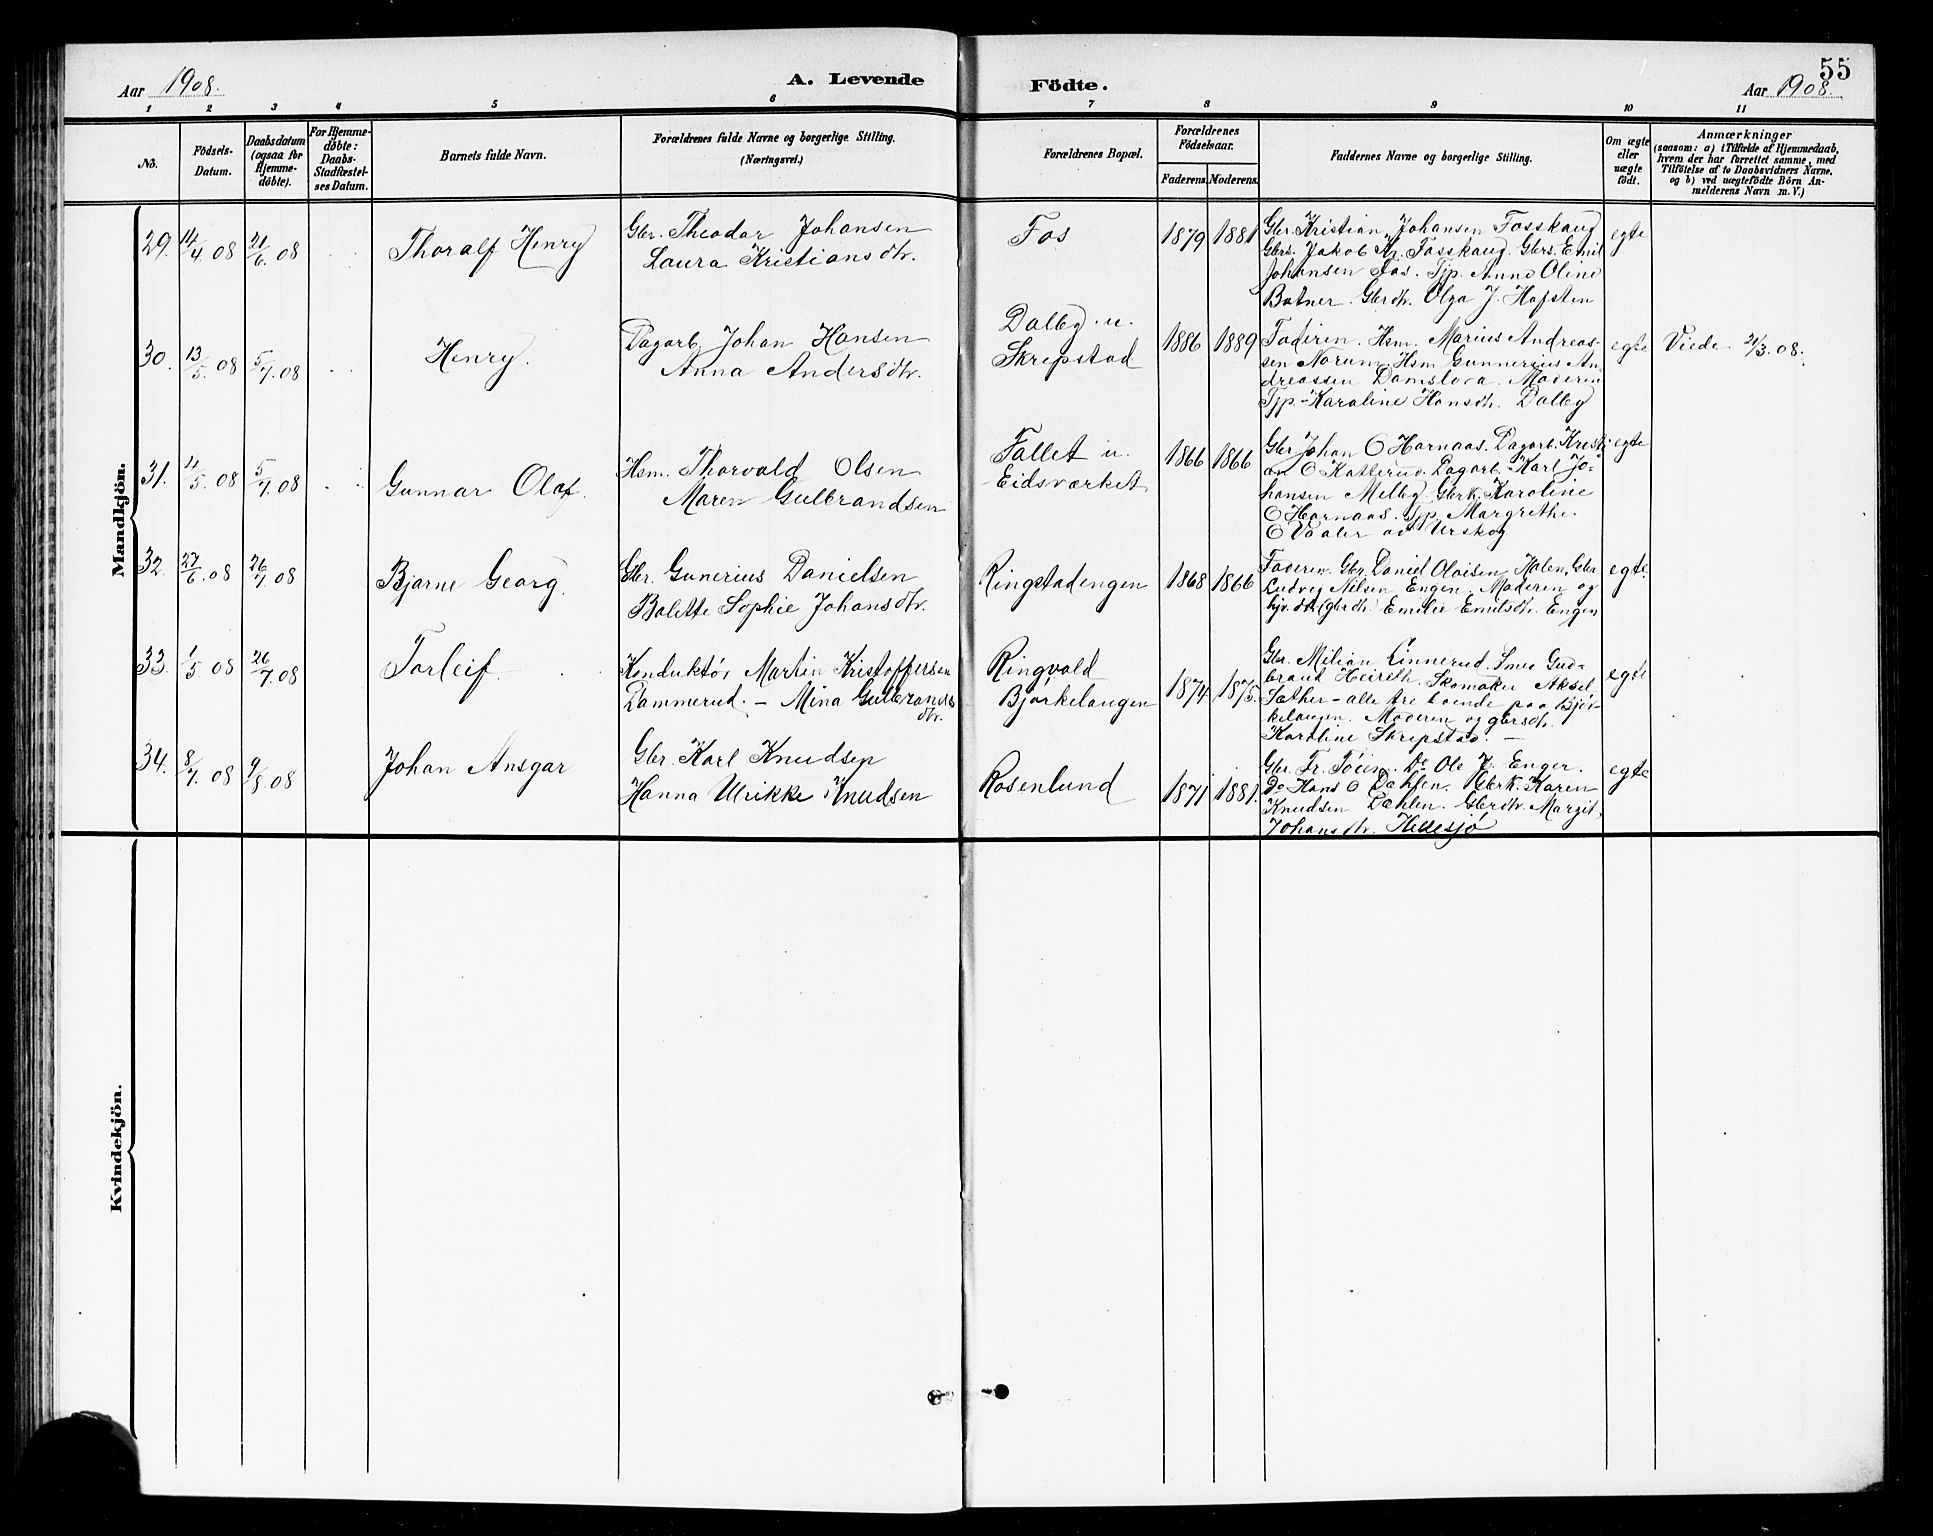 55
Aar 1908.
A. Levende
Födte.
Aar 1908.
1 2 3 4 5 6 7 8 9 10 11
No.
Födsels-
Datum.
Daabsdatum
(ogsaa for
Hjemme-
döbte).
For Hjemme-
döbte:
Daabs-
Stadfæstel-
ses Datum.
Barnets fulde Navn.
Forældrenes fulde Navne og borgerlige Stilling.
(Næringsvei.)
Forældrenes Bopæl.
Forældrenes
Födselsaar.
Faderens. Moderens.
Faddernes Navne og borgerlige Stilling.
Om ægte
eller
uægte
födt.
Anmærkninger
(saasom: a) i Tilfælde af Hjemmedaab,
hvem der har forrettet samme, med
Tilföielse af to Daabsvidners Navne,
og b) ved uægtefödte Börn An-
melderens Navn m. V.)
Mandkjön.
29. 14/4 08 21/6 08
Thoralf Henry
Gbr. Theodor Johansen
Laura Kristiansdtr.
Fos
1879 1881
Gbr. Kristian Johansen Fosskaug
Gbrs. Jakob Kr. Fosskaug. Gbrs. Emil
Johansen Fos. Tjp. Anna Oline
Botner. Gbrdtr. Olga J. Hofsten
egte
30. 13/5 08 5/7 08
Henry.
Dagarb. Johan Hansen
Anna Andersdtr.
Dalby u.
Skrepstad
1886 1889
Faderen. Hsm. Marius Andreas-
sen Norum. Hsm Gunnerius An-
dreassen Damslora. Moderen
Tjp. Karoline Hansdtr. Dalby
egte
Viede 21/3 08.
31. 4/5 08 5/7 08
Gunnar Olaf.
Hsm. Thorvald Olsen
Maren Gulbrandsen
Fallet u.
Eidsverket
1866 1866
Gbr Johan O Harnaas. Dagarb. Kristi-
an O Katterud. Dagarb. Karl Jo-
hansen Melby. Gbrk. Karoline
O Harnaas. Tjp. Margrethe
O Vaaler av Urskog
egte
32. 27/6 08 26/7 08
Bjarne Georg.
Gbr. Gunerius Danielsen
Bolette Sophie Johansdtr.
Ringstadengen
1868 1866
Faderen. Gbr. Daniel Olaisen Holen. Gbr
Ludvig Nilsen Engen. Moderen og
hjv. dtr (gbrdtr.) Emilie Emilsdtr. Engen
egte
33. 1/5 08 26/7 08
Torleif.
Konduktör Martin Kristoffersen
Dammerud. — Mina Gulbrands
dtr.
Ringvold
Bjørkelangen
1874 1875.
Gbr. Milian Linnerud. Smed Gud-
brand Heireth. Skomaker Aksel
Sæther – alle tre boende paa Bjør-
kelangen. Moderen og gbrsdtr.
Karoline Skrepstad. —
egte
34. 8/7 08 9/8 08
Johan Ansgar
Gbr. Karl Knudsen
Hanna Ulrikke Knudsen
Rosenlund
1871 1881.
Gbr. Fr. Toien. Do Ole J. Enger.
Do Hans O Dæhlen. Gbrk. Karen
Knudsen Dæhlen. Gbrdtr. Margit
Johansdtr. Hellesjö
egte
Kvindekjön.